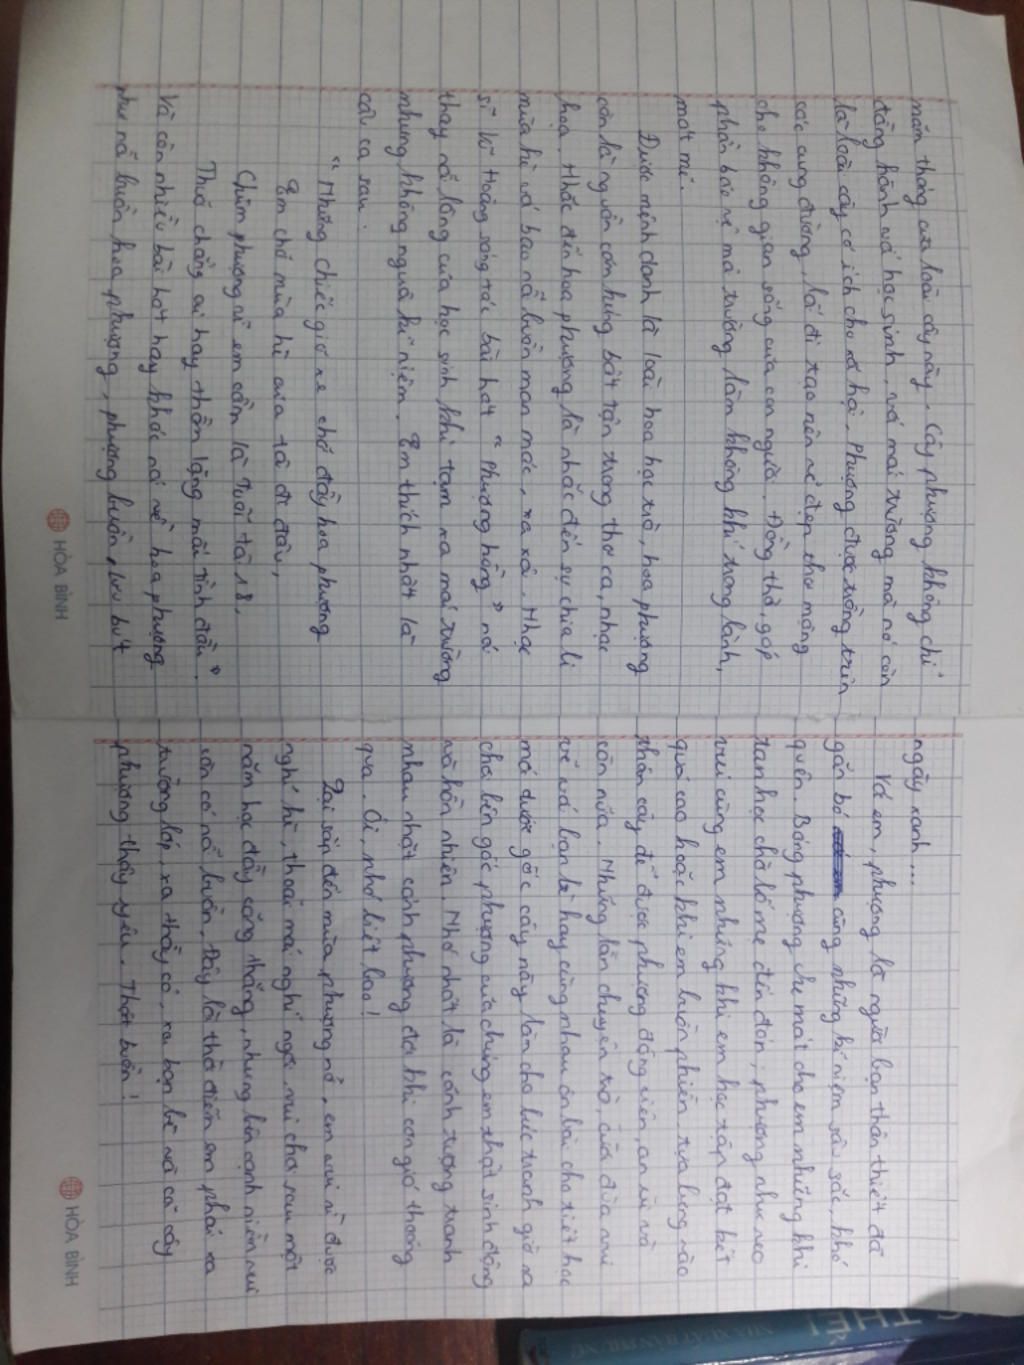 năm tháng của loài cây này. Cây phượng không chỉ
đồng hành với học sinh, với mái trường mà nó còn
là loài cây có ích cho xã hội. Phượng được trồng trên
các cung đường, lối đi tạo nên vẻ đẹp thơ mộng
cho không gian sống của con người. Đồng thời góp
phần bảo vệ môi trường làm không khí trong lành,
mát mẻ.
Được mệnh danh là loài hoa học trò, hoa phượng
còn là nguồn cảm hứng bất tận trong thơ ca, nhạc
họa. Nhắc đến hoa phượng là nhắc đến sự chia li
mùa hè với bao nỗi buồn man mác, xa xôi. Nhạc
sĩ Vũ Hoàng sáng tác bài hát "Phượng hồng" nói
thay nỗi lòng của học sinh khi tạm xa mái trường
nhưng không nguôi kỉ niệm. Em thích nhất là
câu ca sau:
"Những chiếc giỏ xe chở đầy hoa phượng
Em chở mùa hè của tôi đi đâu,
Chùm phượng vĩ em cầm là tuổi tôi 18,
Thuở chẳng ai hay thầm lặng mối tình đầu".
Và còn nhiều bài hát hay khác nói về hoa phượng
như nỗi buồn hoa phượng, phượng buồn, lưu bút
ngày xanh...
Với em, phượng là người bạn thân thiết đã
gắn bó cùng những kỉ niệm sâu sắc, khó
quên. Bóng phượng che mát cho em những khi
tan học chờ bố mẹ đến đón; phượng như reo
vui cùng em những khi em học tập đạt kết
quả cao hoặc khi em buồn phiền tựa lưng vào
thân cây để được phượng động viên, an ủi và
còn nữa. Những lần chuyện trò, đùa vui
vẻ với bạn bè hay cùng nhau ôn bài cho tiết học
mới dưới gốc cây này làm cho bức tranh giờ ra
chơi bên gốc phượng của chúng em thật sinh động
và hồn nhiên. Nhớ nhất là cảnh tượng tranh
nhau nhặt cánh phượng rơi khi cơn gió thoảng
qua. Ôi, nhớ biết bao!
Lại sắp đến mùa phượng nở, em vui vì được
nghỉ hè, thoải mái nghỉ ngơi vui chơi sau một
năm học đầy căng thẳng, nhưng bên cạnh niềm vui
vẫn có nỗi buồn. Đây là thời điểm em phải xa
trường lớp, xa thầy cô, xa bạn bè và cả cây
phượng thấy yêu. Thật buồn!
HÒA BÌNH
HÒA BÌNH
NHÀ XUẤT BẢN